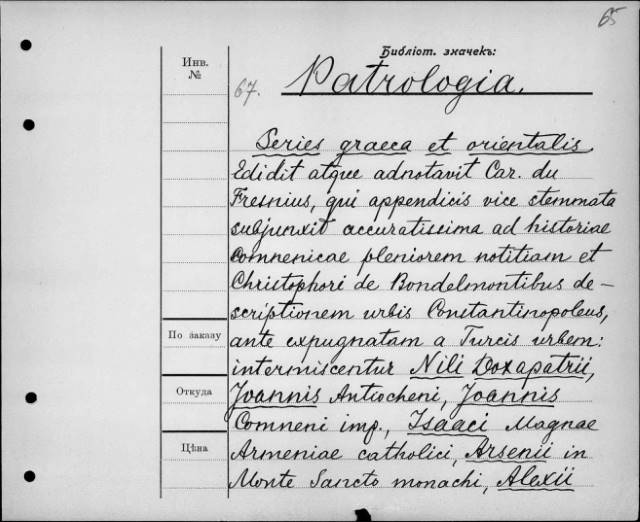 65
Библіот. значекъ:
Инв.
№
67.
Patrologia.
Series graeca et orientalis
Edidit atque adnotavit Car. du
Fresnius, qui appendicis vice stemmata
subjunxit accuratissima ad historiae
comnenicae pleniorem notitiam et
Christophori de Bondelmontibus de-
scriptionem urbis Constantinopoleus,
ante expugnatam a Turcis urbem:
intermiscentur Nili Doxapatrii,
Joannis Antiocheni, Joannis
Comneni imp., Isaaci Magnae
Armeniae catholici, Arsenii in
Monte Sancto monachi, Alexii
По заказу
Откуда
Цѣна